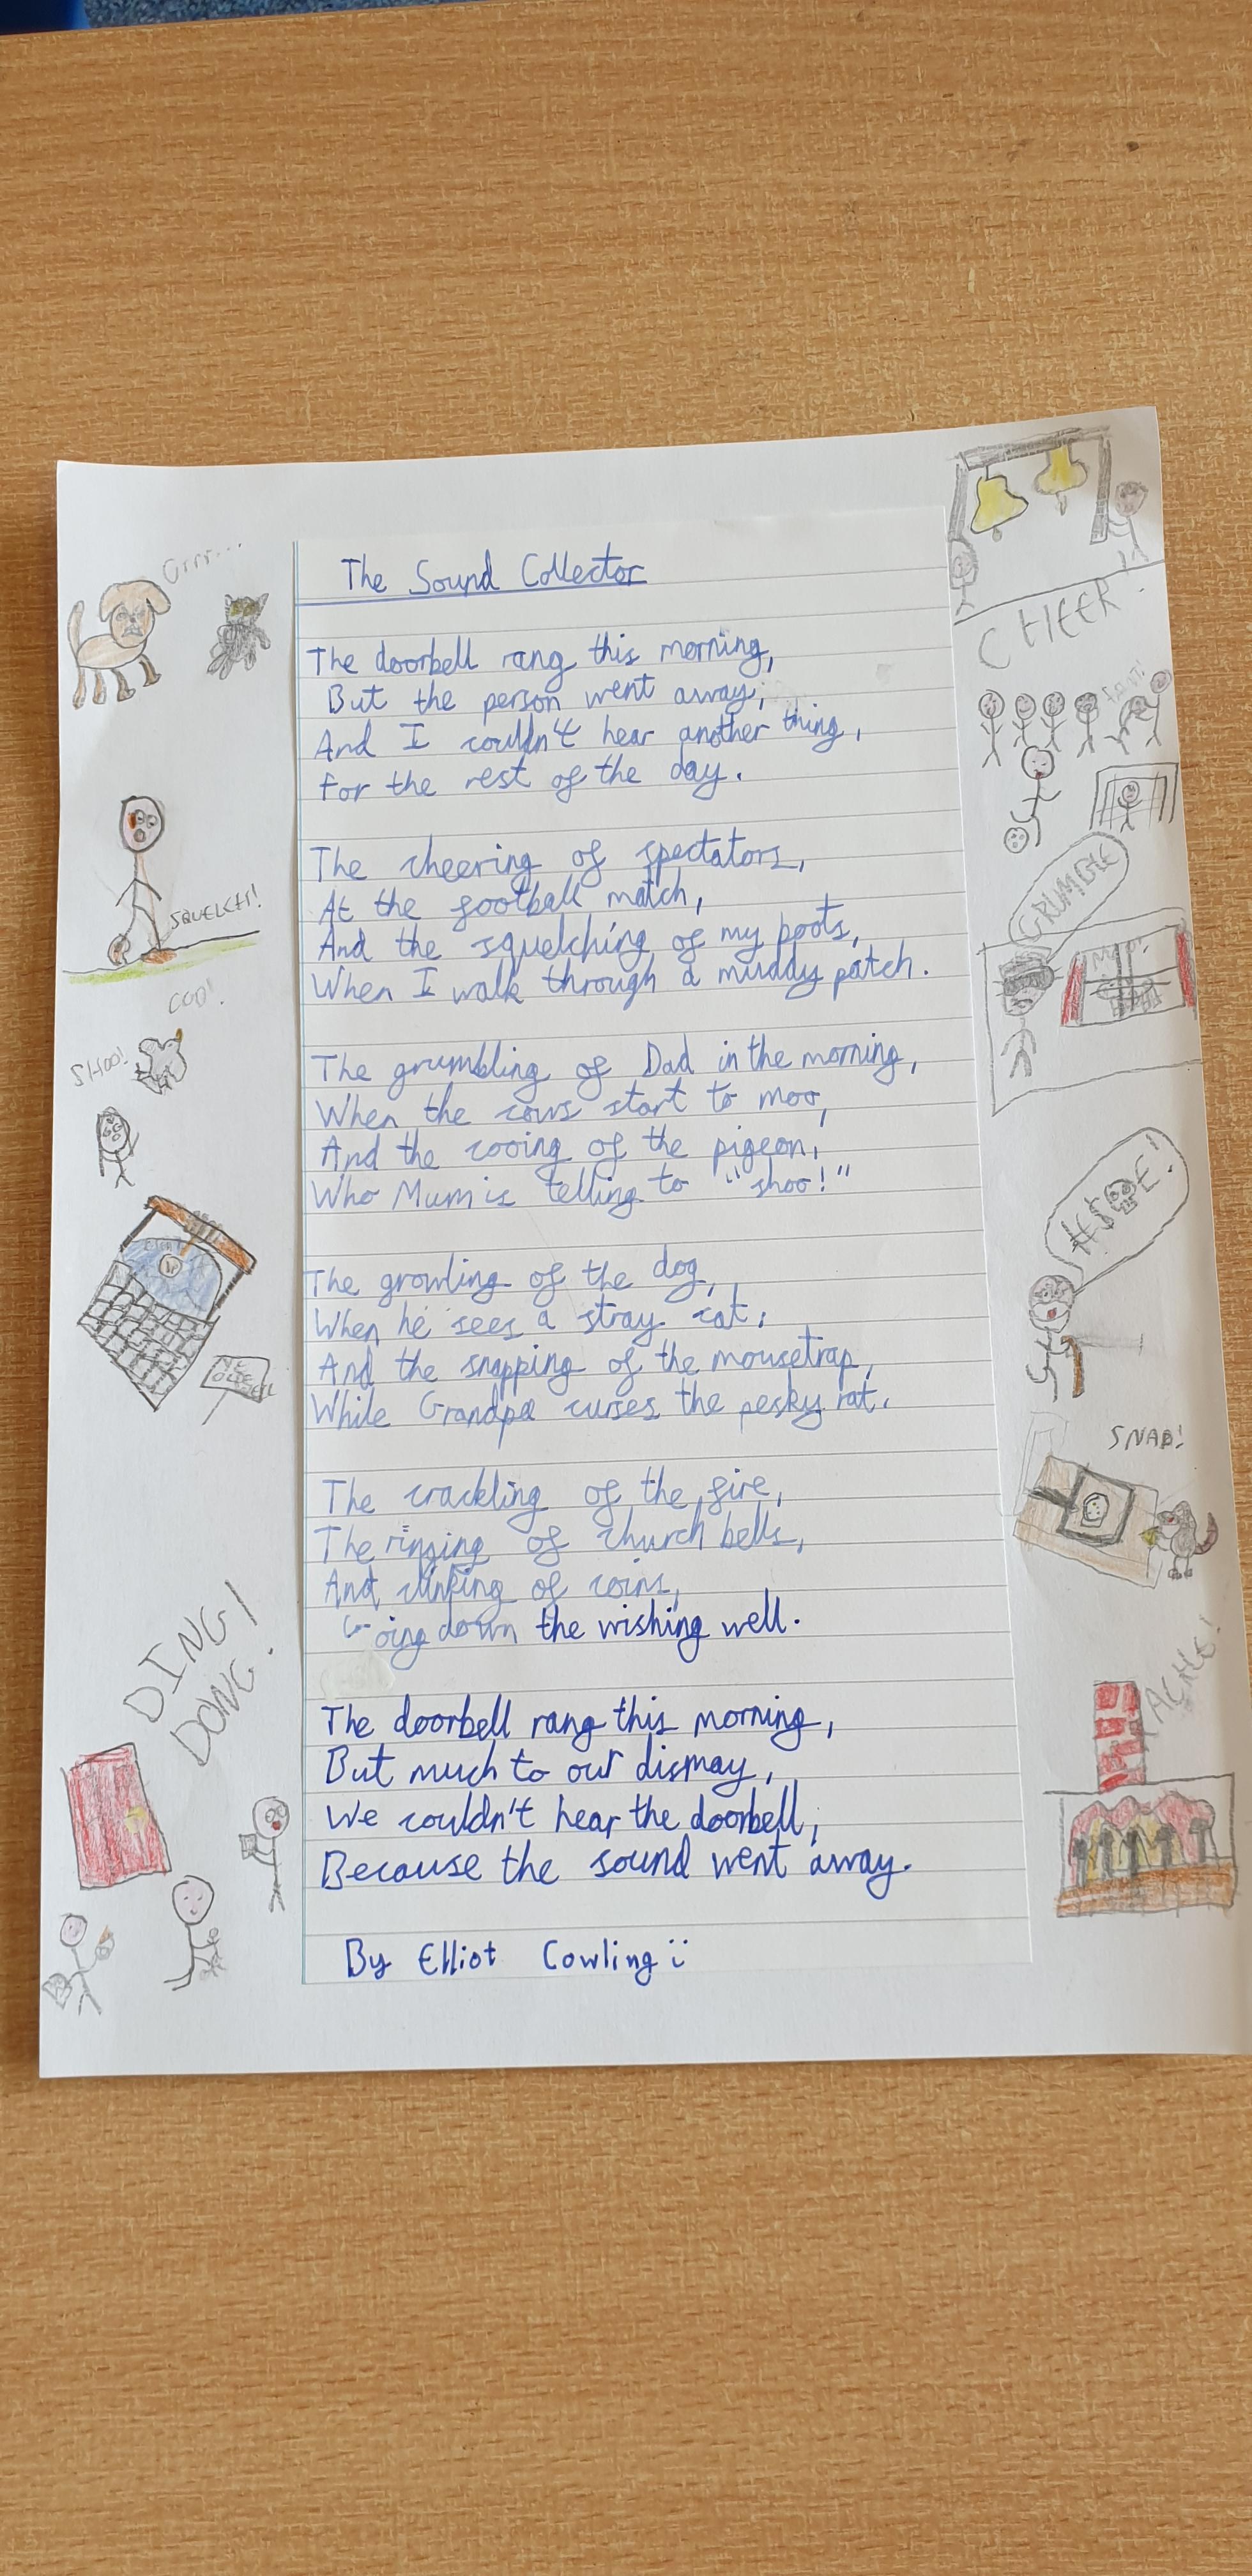 The Sound Collector
The doorbell rang this morning,
But the person went away,
And I couldn't hear another thing,
For the rest of the day.
The cheering of spectators,
At the football match,
And the squelching of my boots,
When I walk through a muddy patch.
The grumbling of Dad in the morning,
When the cows start to moo,
And the cooing of the pigeon,
Who Mum is telling to "shoo!"
The growling of the dog,
When he sees a stray cat,
And the snapping of the mousetrap,
While Grandpa curses the pesky rat.
The crackling of the fire,
The ringing of church bells,
And clinking of coins,
Going down the wishing well.
The doorbell rang this morning,
But much to our dismay,
We couldn't hear the doorbell,
Because the sound went away.
By Elliot Cowling
Grrr...
SQUELCH!
COO!
SHOO!
DING
DONG!
CHEER!
GRUMBLE
MOO!
SNAP!